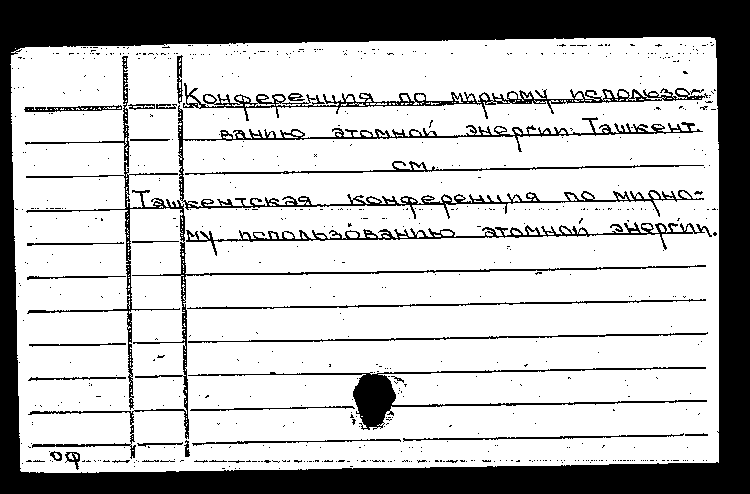 Конференция по мирному использо-
ванию атомной энергии. Ташкент.
см.
Ташкентская конференция по мирно-
му использованию атомной энергии.
оф